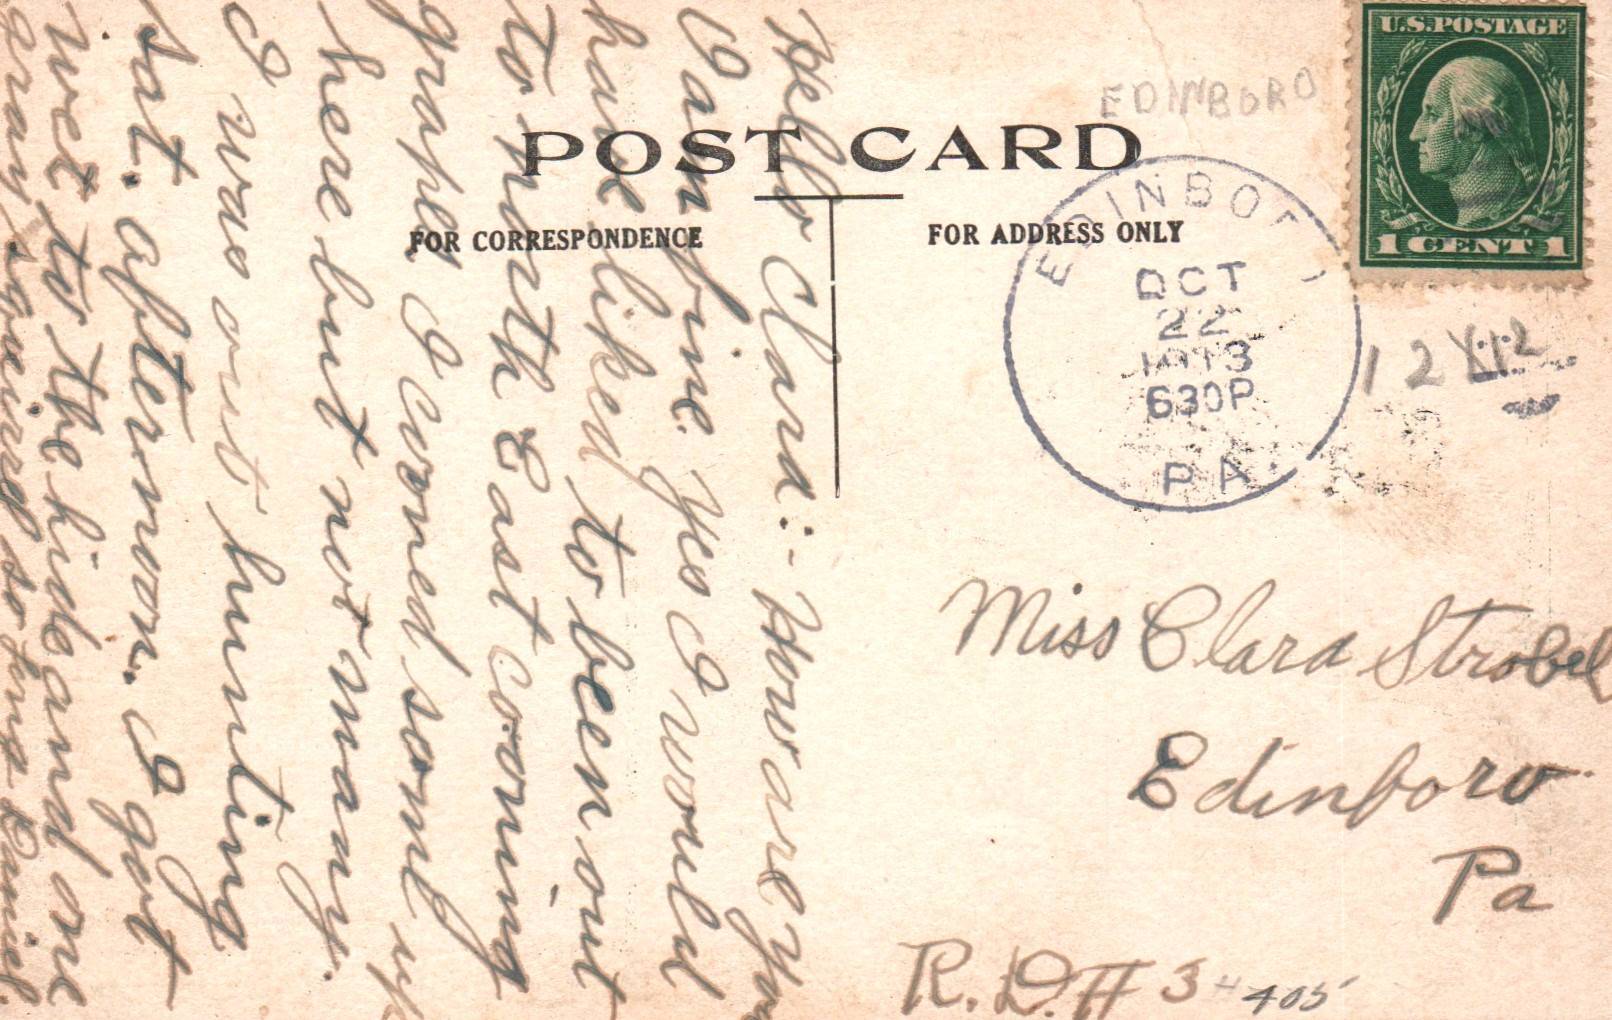 U.S. POSTAGE
1 CENT 1
EDINBORO
POST CARD
FOR CORRESPONDENCE
FOR ADDRESS ONLY
EDINBO
OCT
22
1913
630P
PA
12
Miss Clara Strobel
Edinboro
Pa
R.D.# 3
405
Hello Clara:- How are you
I am fine. Yes I would
have liked to been out
to north East coming
grapes I corned some up
here but not many.
I was out hunting
Sat. afternoon. I got
wet to the hide and one
gray squirrel so long Daniel.